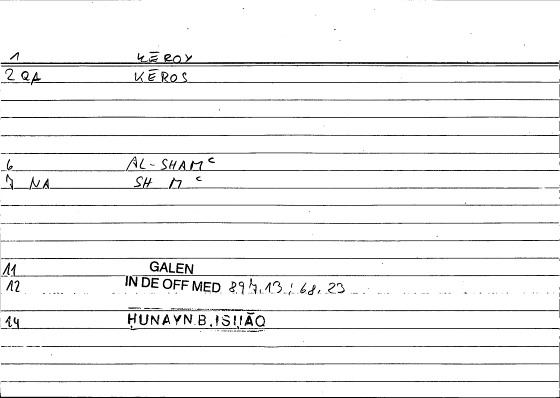 1 KĒROY
2 QA KĒROS
6 AL-SHAMᶜ
7 NA SH Mᶜ
11 GALEN
12 IN DE OFF MED 897.13; 68.23
14 ḤUNAYN B. ISḤĀQ